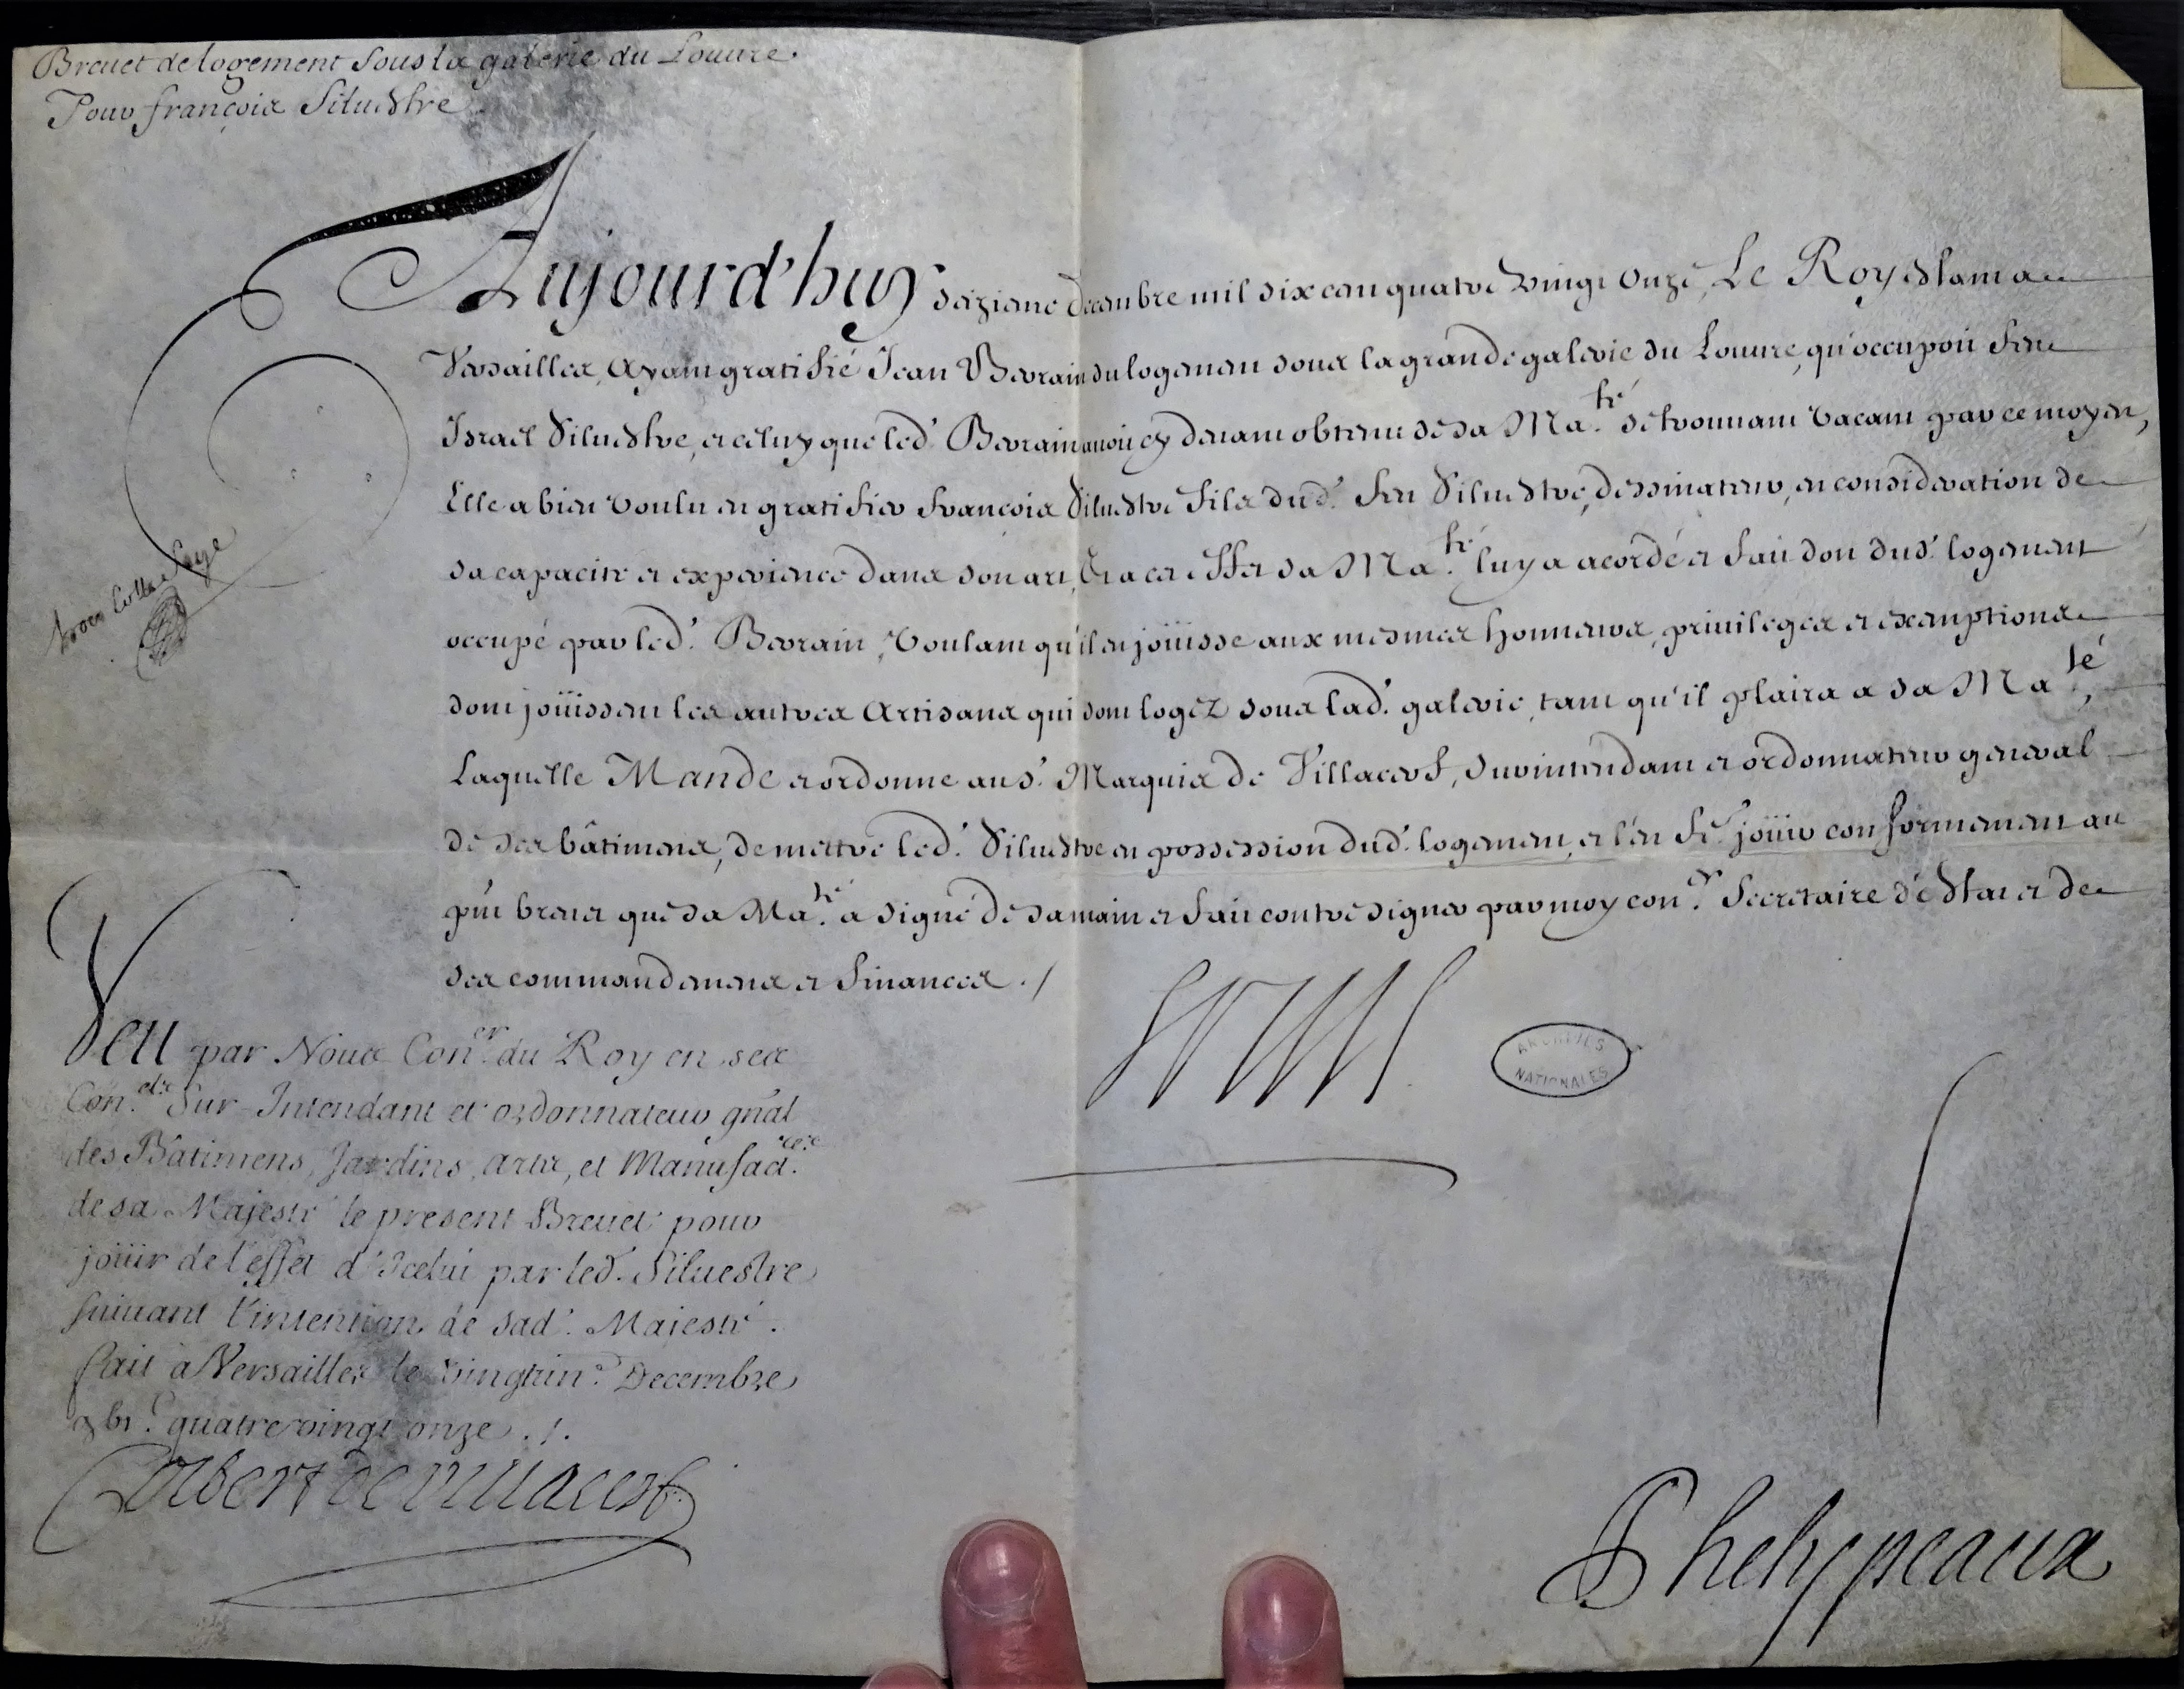 Breuet de logement sous la galerie du Louure.
Pour françois Siluestre
Aujourd'huy seizieme decembre mil six cent quatre vingt onze, Le Roy estant a
Versailles, ayant gratifié Jean Berrain du logement sous la grande galerie du Louure, qu'occupoit feu
Israel Siluestre, et celuy que led. Berrain auoit cy deuant obtenu de sa Ma.té se trouuant vacant par ce moyen,
Elle a bien voulu en gratifier françois Siluestre fils dud. feu Siluestre, dessinateur, en consideration de
sa capacité et experience dans son art, Et a cet effet sa Ma.té luy a acordé et fait don dud. logement
occupé par led. Berrain, Voulant qu'il en joüisse aux mesmes honneurs, priuileges et exemptions
dont joüissent les autres Artisans qui sont logez sous lad. galerie, tant qu'il plaira a sa Ma.té,
Laquelle Mande et ordonne au s.r Marquis de Villacerf, surintendant et ordonnateur general
de ses bâtimens, de mettre led. Siluestre en possession dud. logement, et l'en fe. joüir conformement au
pnt breuet que sa Ma.té a signé de sa main et fait contresigner par moy con.er Secretaire d'Estat et de
ses commandemens et finances ./
Louis
ARCHIVES
NATIONALES
Veu par Nous Con.er du Roy en ses
Con.els Sur-Intendant et ordonnateur gñal
des Bâtimens, Jardins, Arts, et Manufact.res
de sa Majesté le present Breuet pour
joüir de l'effet d'Icelui par led. Siluestre
suiuant l'intention de sad. Majesté.
fait à Versailles le vingtün.e Decembre
gbi.c quatre vingt onze ./.
Colbert de Villacerf
Phelypeaux